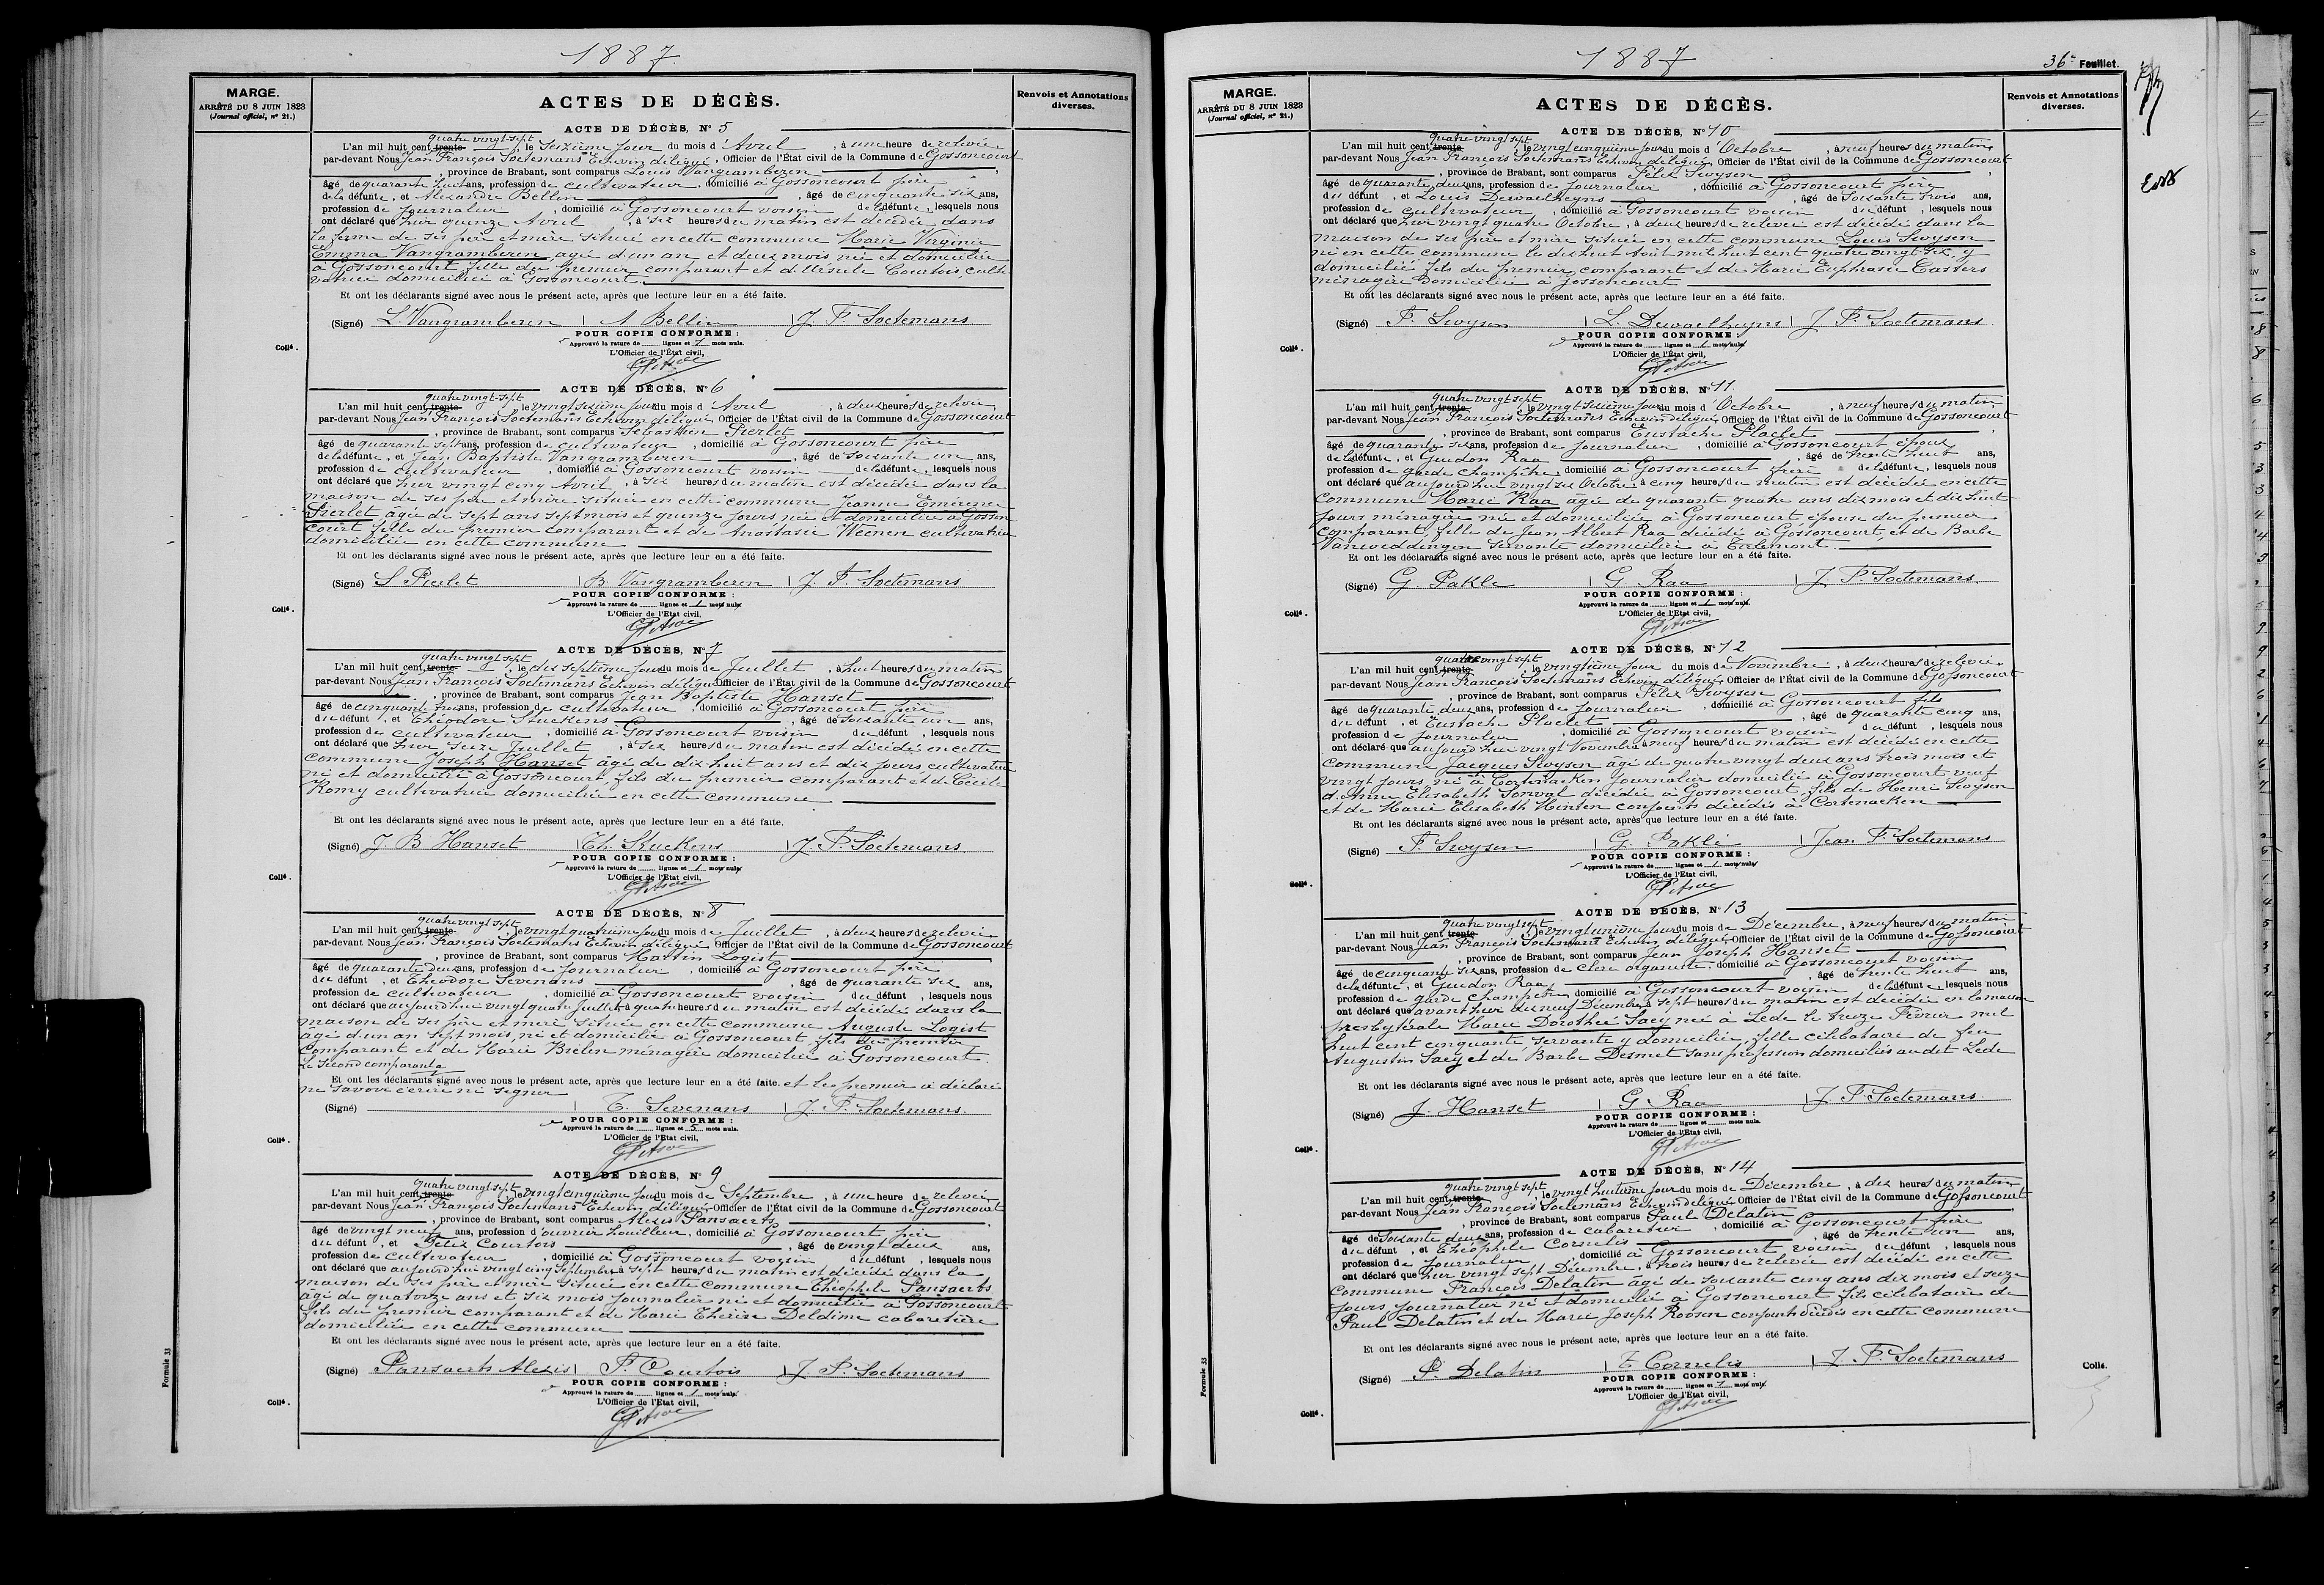 1887.
MARGE.
ARRÊTÉ DU 8 JUIN 1823
(Journal officiel, nº 21.)
ACTES DE DÉCÈS.
Renvois et Annotations
diverses.
ACTE DE DÉCÈS, Nº 5
quatre vingt-sept
L'an mil huit cent trente, le Seizième jour du mois d'Avril, à une heure de relevée
par-devant Nous Jean François Soetemans Echevin délégué, Officier de l'État civil de la Commune de Gossoncourt
, province de Brabant, sont comparus Louis Vangramberen
âgé de quarante huit ans, profession de cultivateur, domicilié à Gossoncourt père
de la défunte, et Alexandre Bellin, âgé de cinquante six ans,
profession de journalier, domicilié à Gossoncourt voisin de la défunte, lesquels nous
ont déclaré que hier quinze Avril, à six heures du matin est décédée dans
la ferme de ses père et mère située en cette commune Marie Virginie
Emma Vangramberen agée d'un an et deux mois née et domiciliée
à Gossoncourt fille du premier comparant et d'Ursule Courtois, culti-
vatrice domiciliée à Gossoncourt.
Et ont les déclarants signé avec nous le présent acte, après que lecture leur en a été faite.
(Signé) L. Vangramberen | A Bellin | J. F. Soetemans
POUR COPIE CONFORME :
Approuvé la rature de lignes et 1 mots nuls.
L'Officier de l'État civil,
Collé.
ACTE DE DÉCÈS, Nº 6
quatre vingt-sept
L'an mil huit cent trente, le vingt sixième jour du mois d'Avril, à deux heures de relevée
par-devant Nous Jean François Soetemans Echevin délégué Officier de l'État civil de la Commune de Gossoncourt
, province de Brabant, sont comparus Sébasthien Pierlet
âgé de quarante sept ans, profession de cultivateur, domicilié à Gossoncourt père
de la défunte, et Jean Baptiste Vangramberen, âgé de soixante un ans,
profession de cultivateur, domicilié à Gossoncourt voisin de la défunte, lesquels nous
ont déclaré que hier vingt cinq Avril, à six heures du matin est décédée dans la
maison de ses père et mère située en cette commune Jeanne Emérence
Pierlet âgée de sept ans sept mois et quinze jours née et domiciliée à Gosson
court fille du premier comparant et de Anastasie Weenen cultivatrice
domiciliée en cette commune
Et ont les déclarants signé avec nous le présent acte, après que lecture leur en a été faite.
(Signé) S Pierlet | B. Vangramberen | J. F. Soetemans
POUR COPIE CONFORME :
Approuvé la rature de lignes et 1 mots nuls.
L'Officier de l'État civil,
Collé.
ACTE DE DÉCÈS, Nº 7
quatre vingt sept
L'an mil huit cent trente, le dix septième jour du mois de Juillet, à huit heures du matin
par-devant Nous Jean François Soetemans Echevin délégué Officier de l'État civil de la Commune de Gossoncourt
, province de Brabant, sont comparus Jean Baptiste Hanset
âgé de cinquante trois ans, profession de cultivateur, domicilié à Gossoncourt père
du défunt, et Théodore Stuckens, âgé de soixante un ans,
profession de cultivateur, domicilié à Gossoncourt voisin du défunt, lesquels nous
ont déclaré que hier seize Juillet, à six heures du matin est décédé en cette
commune Joseph Hanset âgé de dix-huit ans et dix jours, cultivateur
né et domicilié à Gossoncourt, fils du premier comparant et de Cécile
Romy cultivatrice domiciliée en cette commune
Et ont les déclarants signé avec nous le présent acte, après que lecture leur en a été faite.
(Signé) J. B Hanset | Th. Stuckens | J. F. Soetemans
POUR COPIE CONFORME :
Approuvé la rature de lignes et 1 mots nuls.
L'Officier de l'État civil,
Collé.
ACTE DE DÉCÈS, Nº 8
quatre vingt sept
L'an mil huit cent trente, le vingt quatrième jour du mois de Juillet, à deux heures de relevée
par-devant Nous Jean François Soetemans Echevin délégué Officier de l'État civil de la Commune de Gossoncourt
, province de Brabant, sont comparus Martin Logist
âgé de quarante deux ans, profession de journalier, domicilié à Gossoncourt père
du défunt, et Théodore Sevenans, âgé de quarante six ans,
profession de cultivateur, domicilié à Gossoncourt voisin du défunt, lesquels nous
ont déclaré que aujourd'hui vingt quatre Juillet à quatre heures du matin est décédé dans la
maison de ses père et mère située en cette commune Auguste Logist
âgé d'un an sept mois, né et domicilié à Gossoncourt, fils du premier
comparant et de Marie Brilen ménagère domiciliée à Gossoncourt.
Le second comparant a
Et ont les déclarants signé avec nous le présent acte, après que lecture leur en a été faite. et le premier a déclaré
ne savoir écrire ni signer
(Signé) | T. Sevenans | J. F. Soetemans.
POUR COPIE CONFORME :
Approuvé la rature de lignes et 5 mots nuls.
L'Officier de l'État civil,
Collé.
ACTE DE DÉCÈS, Nº 9
quatre vingt sept
L'an mil huit cent trente, le vingt cinquième jour du mois de Septembre, à une heure de relevée
par-devant Nous Jean François Soetemans Echevin délégué Officier de l'État civil de la Commune de Gossoncourt
, province de Brabant, sont comparus Alexis Pansaerts
âgé de vingt neuf ans, profession d'ouvrier houilleur, domicilié à Gossoncourt père
du défunt, et Félix Courtois, âgé de vingt deux ans,
profession de cultivateur, domicilié à Gossoncourt voisin du défunt, lesquels nous
ont déclaré que aujourd'hui vingt cinq Septembre à sept heures du matin est décédé dans la
maison de ses père et mère située en cette commune Théophile Pansaerts
âgé de quatorze ans et six mois journalier né et domicilié à Gossoncourt
fils du premier comparant et de Marie Thérèse Deldime cabaretière
domiciliée en cette commune
Et ont les déclarants signé avec nous le présent acte, après que lecture leur en a été faite.
(Signé) Pansaerts Alexis | F. Courtois | J. F. Soetemans
POUR COPIE CONFORME :
Approuvé la rature de lignes et 1 mots nuls.
L'Officier de l'État civil,
Collé.
Formule 33
1887
36e Feuillet.
MARGE.
ARRÊTÉ DU 8 JUIN 1823
(Journal officiel, nº 21.)
ACTES DE DÉCÈS.
Renvois et Annotations
diverses.
ACTE DE DÉCÈS, Nº 10
quatre vingt sept
L'an mil huit cent trente, le vingt cinquième jour du mois d'Octobre, à neuf heures du matin
par-devant Nous Jean François Soetemans Echevin délégué, Officier de l'État civil de la Commune de Gossoncourt
, province de Brabant, sont comparus Félix Swysen
âgé de quarante deux ans, profession de journalier, domicilié à Gossoncourt père
du défunt, et Louis Dewaelheyns, âgé de Soixante trois ans,
profession de cultivateur, domicilié à Gossoncourt voisin du défunt, lesquels nous
ont déclaré que hier vingt quatre Octobre, à deux heures de relevée est décédé dans la
maison de ses père et mère située en cette commune Louis Swysen
né en cette commune le dix huit Août mil huit cent quatre vingt six, y
domicilié fils du premier comparant et de Marie Euphrasie Casters
ménagère domiciliée à Gossoncourt
Et ont les déclarants signé avec nous le présent acte, après que lecture leur en a été faite.
(Signé) F. Swysen | L. Dewaelheyns | J. F. Soetemans
POUR COPIE CONFORME :
Approuvé la rature de lignes et 1 mots nuls.
L'Officier de l'État civil,
Collé.
ACTE DE DÉCÈS, Nº 11.
quatre vingt sept
L'an mil huit cent trente, le vingt sixième jour du mois d'Octobre, à neuf heures du matin
par-devant Nous Jean François Soetemans Echevin délégué Officier de l'État civil de la Commune de Gossoncourt
, province de Brabant, sont comparus Eustache Placlet
âgé de quarante six ans, profession de journalier, domicilié à Gossoncourt époux
de la défunte, et Guidon Raa, âgé de trente huit ans,
profession de garde champêtre, domicilié à Gossoncourt frère de la défunte, lesquels nous
ont déclaré que aujourd'hui vingt six Octobre à cinq heures du matin est décédée en cette
commune Marie Raa âgée de quarante quatre ans dix mois et dix huit
jours ménagère née et domiciliée à Gossoncourt épouse du premier
comparant, fille de Jean Albert Raa décédé à Gossoncourt, et de Barbe
Vanweddingen servante domiciliée à Tirlemont.
Et ont les déclarants signé avec nous le présent acte, après que lecture leur en a été faite.
(Signé) G. Pakle | G. Raa | J. F. Soetemans.
POUR COPIE CONFORME :
Approuvé la rature de lignes et 1 mots nuls.
L'Officier de l'État civil,
Collé.
ACTE DE DÉCÈS, Nº 12
quatre vingt sept
L'an mil huit cent trente, le vingtième jour du mois de Novembre, à deux heures de relevée
par-devant Nous Jean François Soetemans Echevin délégué, Officier de l'État civil de la Commune de Gossoncourt
, province de Brabant, sont comparus Félix Swysen
âgé de quarante deux ans, profession de journalier, domicilié à Gossoncourt fils
du défunt, et Eustache Placlet, âgé de quarante cinq ans,
profession de journalier, domicilié à Gossoncourt voisin du défunt, lesquels nous
ont déclaré que aujourd'hui vingt Novembre à neuf heures du matin est décédé en cette
commune Jacques Swysen âgé de quatre vingt deux ans trois mois et
vingt jours, né à Cortenaeken journalier domicilié à Gossoncourt veuf
d'Anne Elisabeth Sorval décédée à Gossoncourt, fils de Henri Swysen
et de Marie Elisabeth Hinten conjoints décédés à Cortenaeken
Et ont les déclarants signé avec nous le présent acte, après que lecture leur en a été faite.
(Signé) F. Swysen | G. Pakle | Jean F. Soetemans
POUR COPIE CONFORME :
Approuvé la rature de lignes et 1 mots nuls.
L'Officier de l'État civil,
Collé.
ACTE DE DÉCÈS, Nº 13
quatre vingt sept
L'an mil huit cent trente, le vingt unième jour du mois de Décembre, à neuf heures du matin
par-devant Nous Jean François Soetemans Echevin délégué Officier de l'État civil de la Commune de Gossoncourt
, province de Brabant, sont comparus Jean Joseph Hanset
âgé de cinquante six ans, profession de clerc organiste, domicilié à Gossoncourt voisin
de la défunte, et Guidon Raa, âgé de trente huit ans,
profession de garde champêtre domicilié à Gossoncourt voisin de la défunte, lesquels nous
ont déclaré que avant hier dix neuf Décembre à sept heures du matin est décédée en la maison
presbytérale Marie Dorothée Saey née à Lede le treize Février mil
huit cent cinquante, servante y domiciliée, fille célibataire de feu
Augustin Saey et de Barbe Desmet sans profession domiciliée au dit Lede
Et ont les déclarants signé avec nous le présent acte, après que lecture leur en a été faite.
(Signé) J. Hanset | G. Raa | J. F. Soetemans.
POUR COPIE CONFORME :
Approuvé la rature de lignes et mots nuls.
L'Officier de l'État civil,
Collé.
ACTE DE DÉCÈS, Nº 14
quatre vingt sept
L'an mil huit cent trente, le vingt huitième jour du mois de Décembre, à dix heures du matin
par-devant Nous Jean François Soetemans Echevin délégué Officier de l'État civil de la Commune de Gossoncourt
, province de Brabant, sont comparus Paul Delatin
âgé de soixante deux ans, profession de cabaretier, domicilié à Gossoncourt frère
du défunt, et Théophile Cornelis, âgé de trente un ans,
profession de journalier, domicilié à Gossoncourt voisin du défunt, lesquels nous
ont déclaré que hier vingt sept Décembre, à trois heures de relevée est décédé en cette
commune François Delatin âgé de soixante cinq ans dix mois et seize
jours journalier né et domicilié à Gossoncourt fils célibataire de
Paul Delatin et de Marie Joseph Roosen conjoints décédés en cette commune
Et ont les déclarants signé avec nous le présent acte, après que lecture leur en a été faite.
(Signé) P. Delatin | T Cornelis | J. F. Soetemans
POUR COPIE CONFORME :
Approuvé la rature de lignes et 1 mots nuls.
L'Officier de l'État civil,
Collé.
Collé.
Formule 33